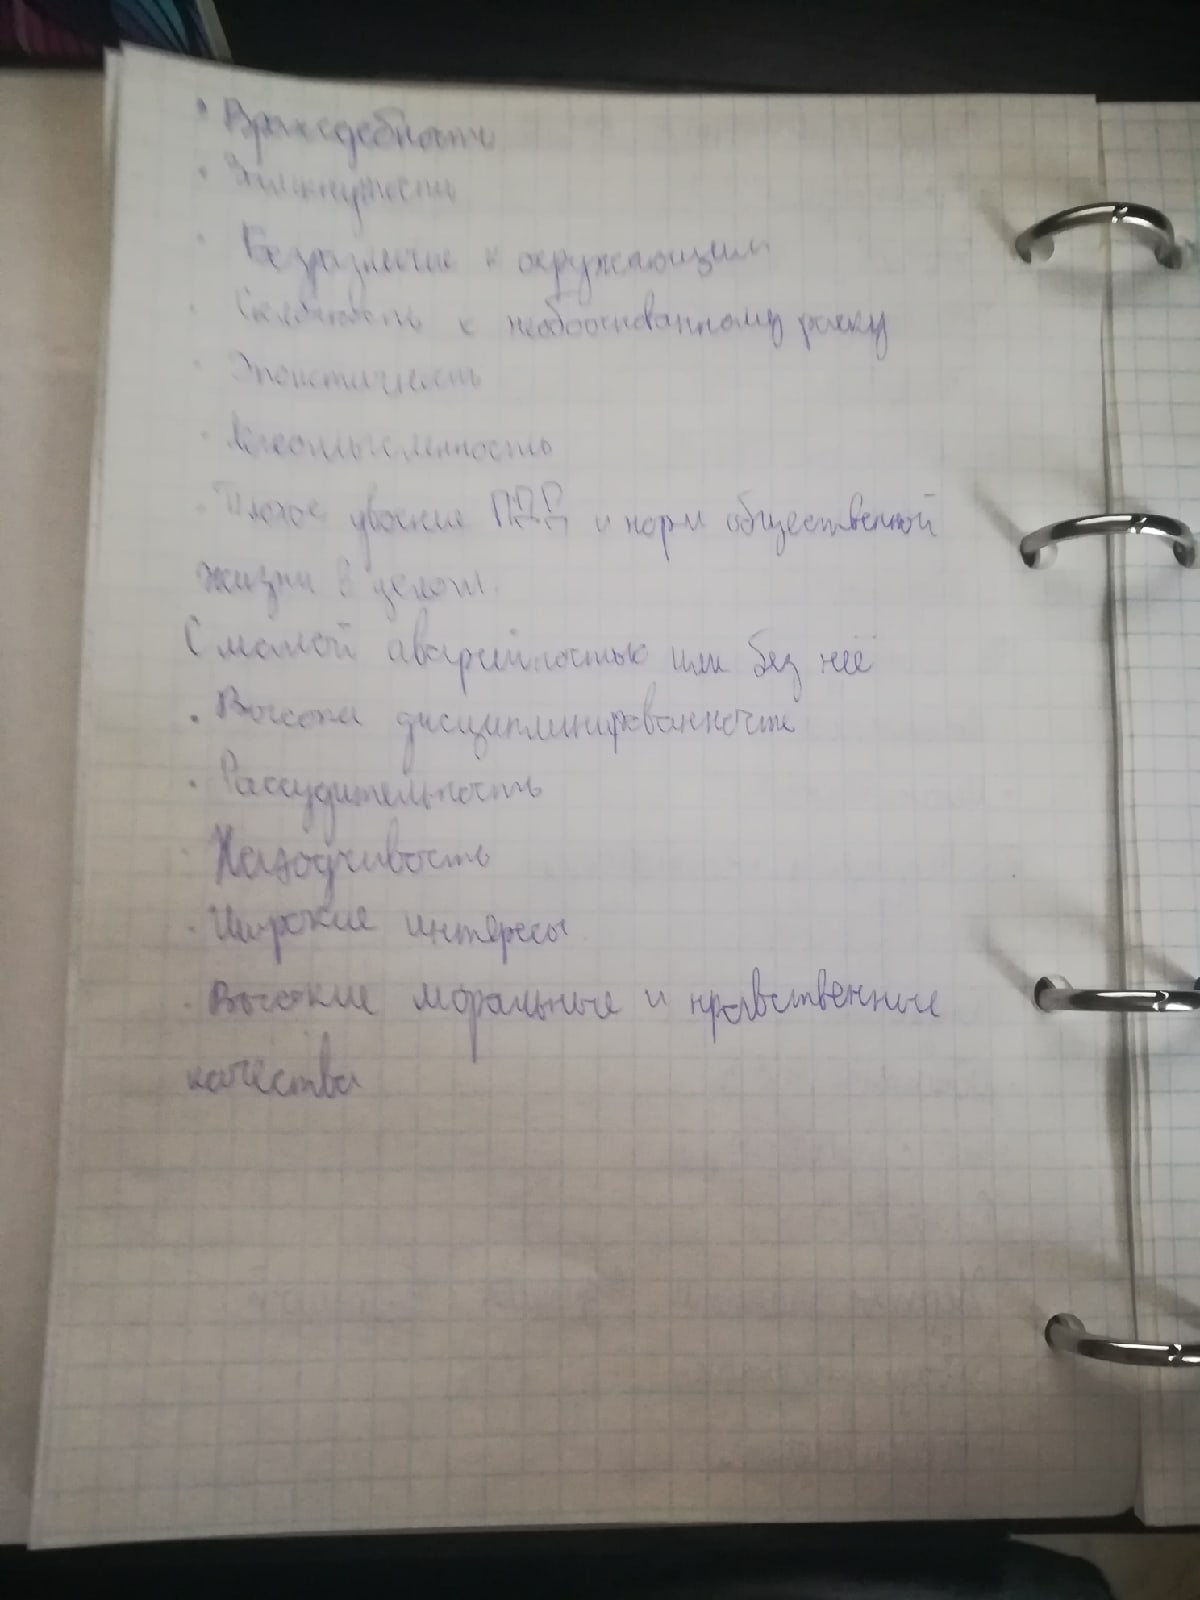 • Враждебность
• Замкнутость
• Безразличие к окружающим
• Склонность к необоснованному риску
• Эгоистичность
• Легкомысленность
• Плохое усвоение ПДД и норм общественной
жизни в целом.
С малой аварийностью или без неё
• Высокая дисциплинированность
• Рассудительность
• Находчивость
• Широкие интересы
• Высокие моральные и нравственные
качества